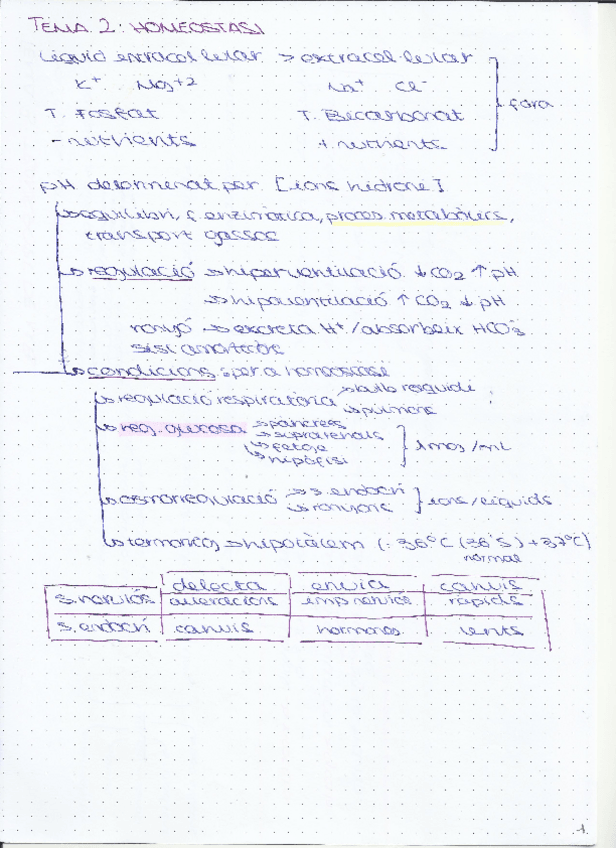 TEMA 2: HOMEOSTASI
Líquid intracel·lular -> extracel·lular
K+ Mg+2 Na+ Cl-
T. Fosfat T. Bicarbonat } fora
- nutrients + nutrients
pH determinat per [ions hidrone]
↳ equilibri, f. enzimàtica, procés metabòlics,
transport gasos
↳ regulació → hiperventilació ↓ CO2 ↑ pH
→ hipoventilació ↑ CO2 ↓ pH
ronyó → excreta H+/absorbeix HCO3
↳ condicions per a homeostasi
↳ regulació respiratòria → bulb raquidi
→ pulmons
↳ reg. glucosa → pàncrees
→ suprarenals
→ fetge } 1mg/mL
→ hipòfisi
↳ osmoregulació → s. endocrí
→ ronyons } ions/líquids
↳ termoreg → hipotàlem (: 36ºC (36'5) + 37ºC)
normal
detecta envia canvis
s. nerviós alteracions impr nervios ràpids
s. endocrí canvis hormones lents
1